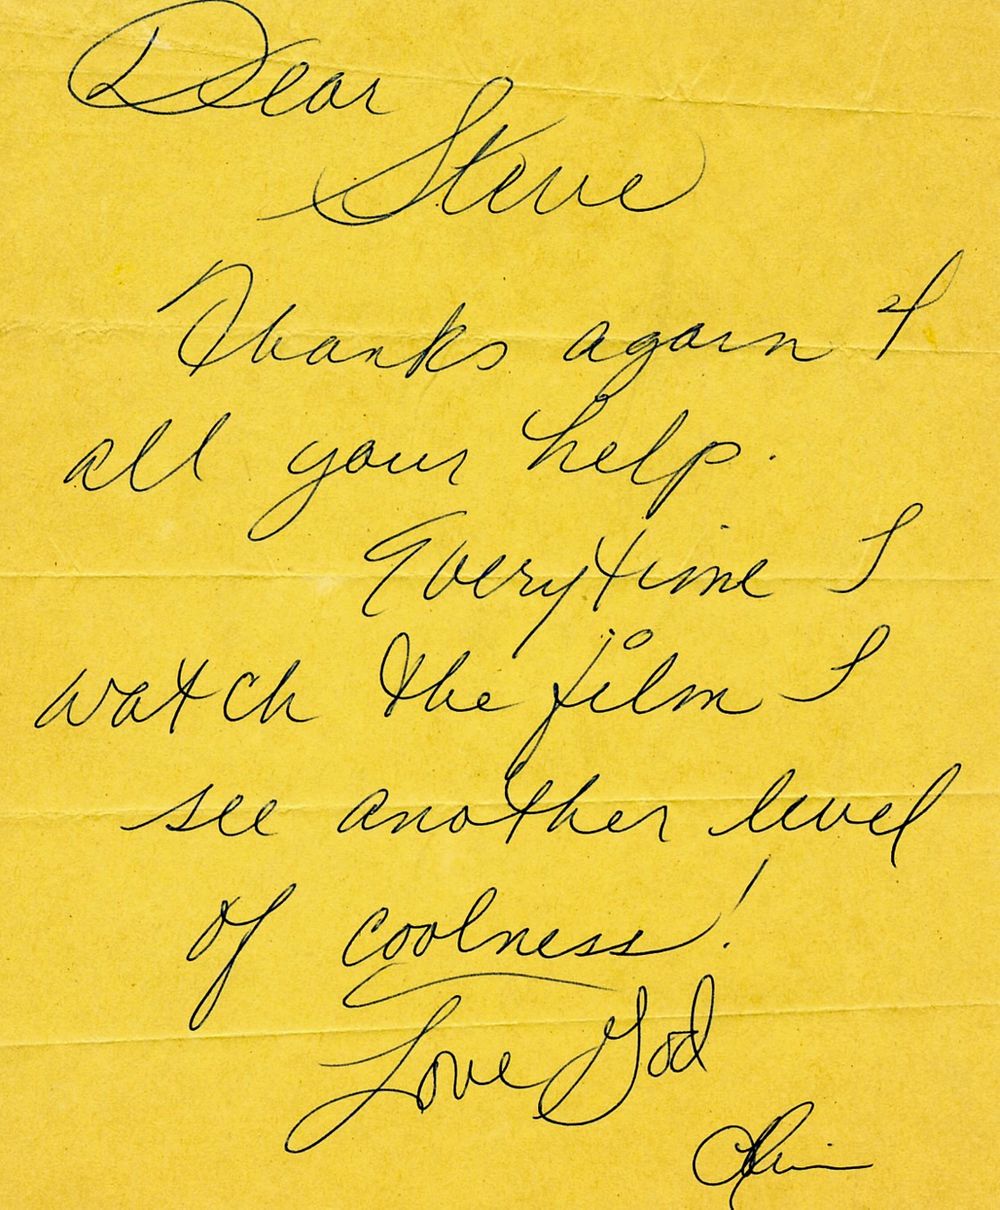 Dear
Steve
Thanks again 4
all your help.
Everytime I
watch the film I
see another level
of coolness!
Love God